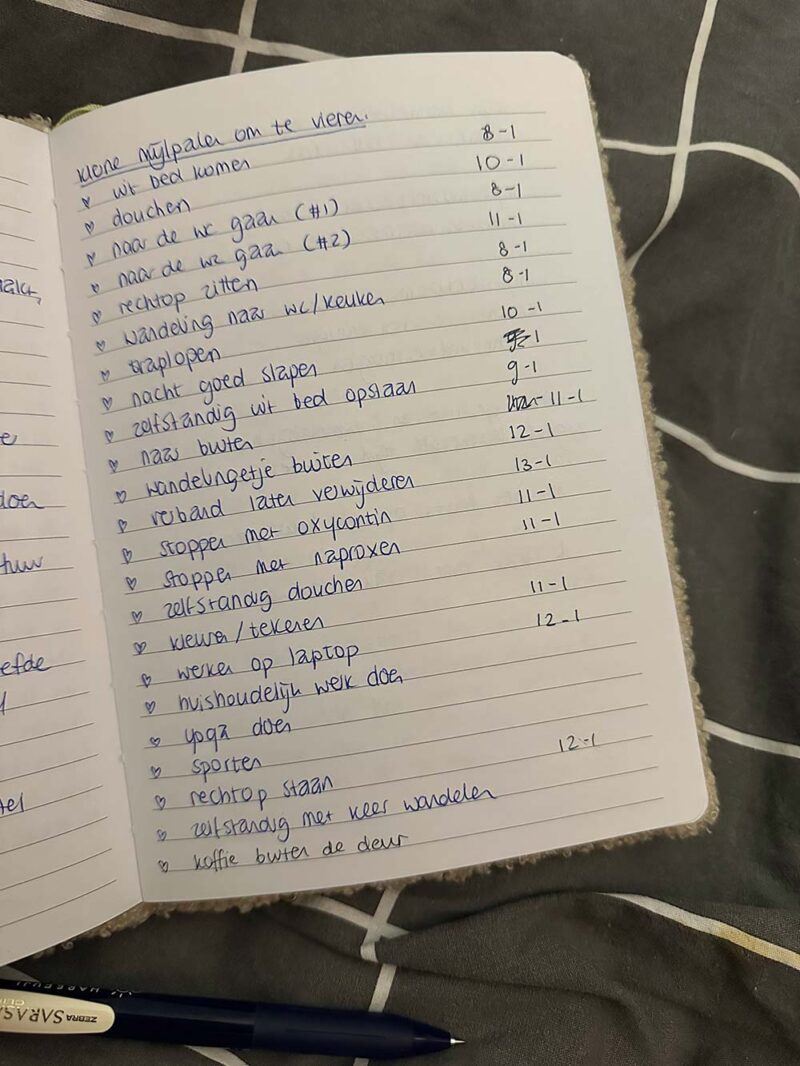 kleine mijlpalen om te vieren:
♡ uit bed komen 8-1
♡ douchen 10-1
♡ naar de wc gaan (#1) 8-1
♡ naar de wc gaan (#2) 11-1
♡ rechtop zitten 8-1
♡ wandeling naar wc/keuken 8-1
♡ traplopen 10-1
♡ nacht goed slapen -1
♡ zelfstandig uit bed opstaan 9-1
♡ naar buiten 11-1
♡ wandelingetje buiten 12-1
♡ verband laten verwijderen 13-1
♡ stoppen met oxycontin 11-1
♡ stoppen met naproxen 11-1
♡ zelfstandig douchen
♡ kleuren/tekenen 11-1
♡ werken op laptop 12-1
♡ huishoudelijk werk doen
♡ yoga doen
♡ sporten
♡ rechtop staan 12-1
♡ zelfstandig met Kees wandelen
♡ koffie buiten de deur
doen
ZEBRA SARASA